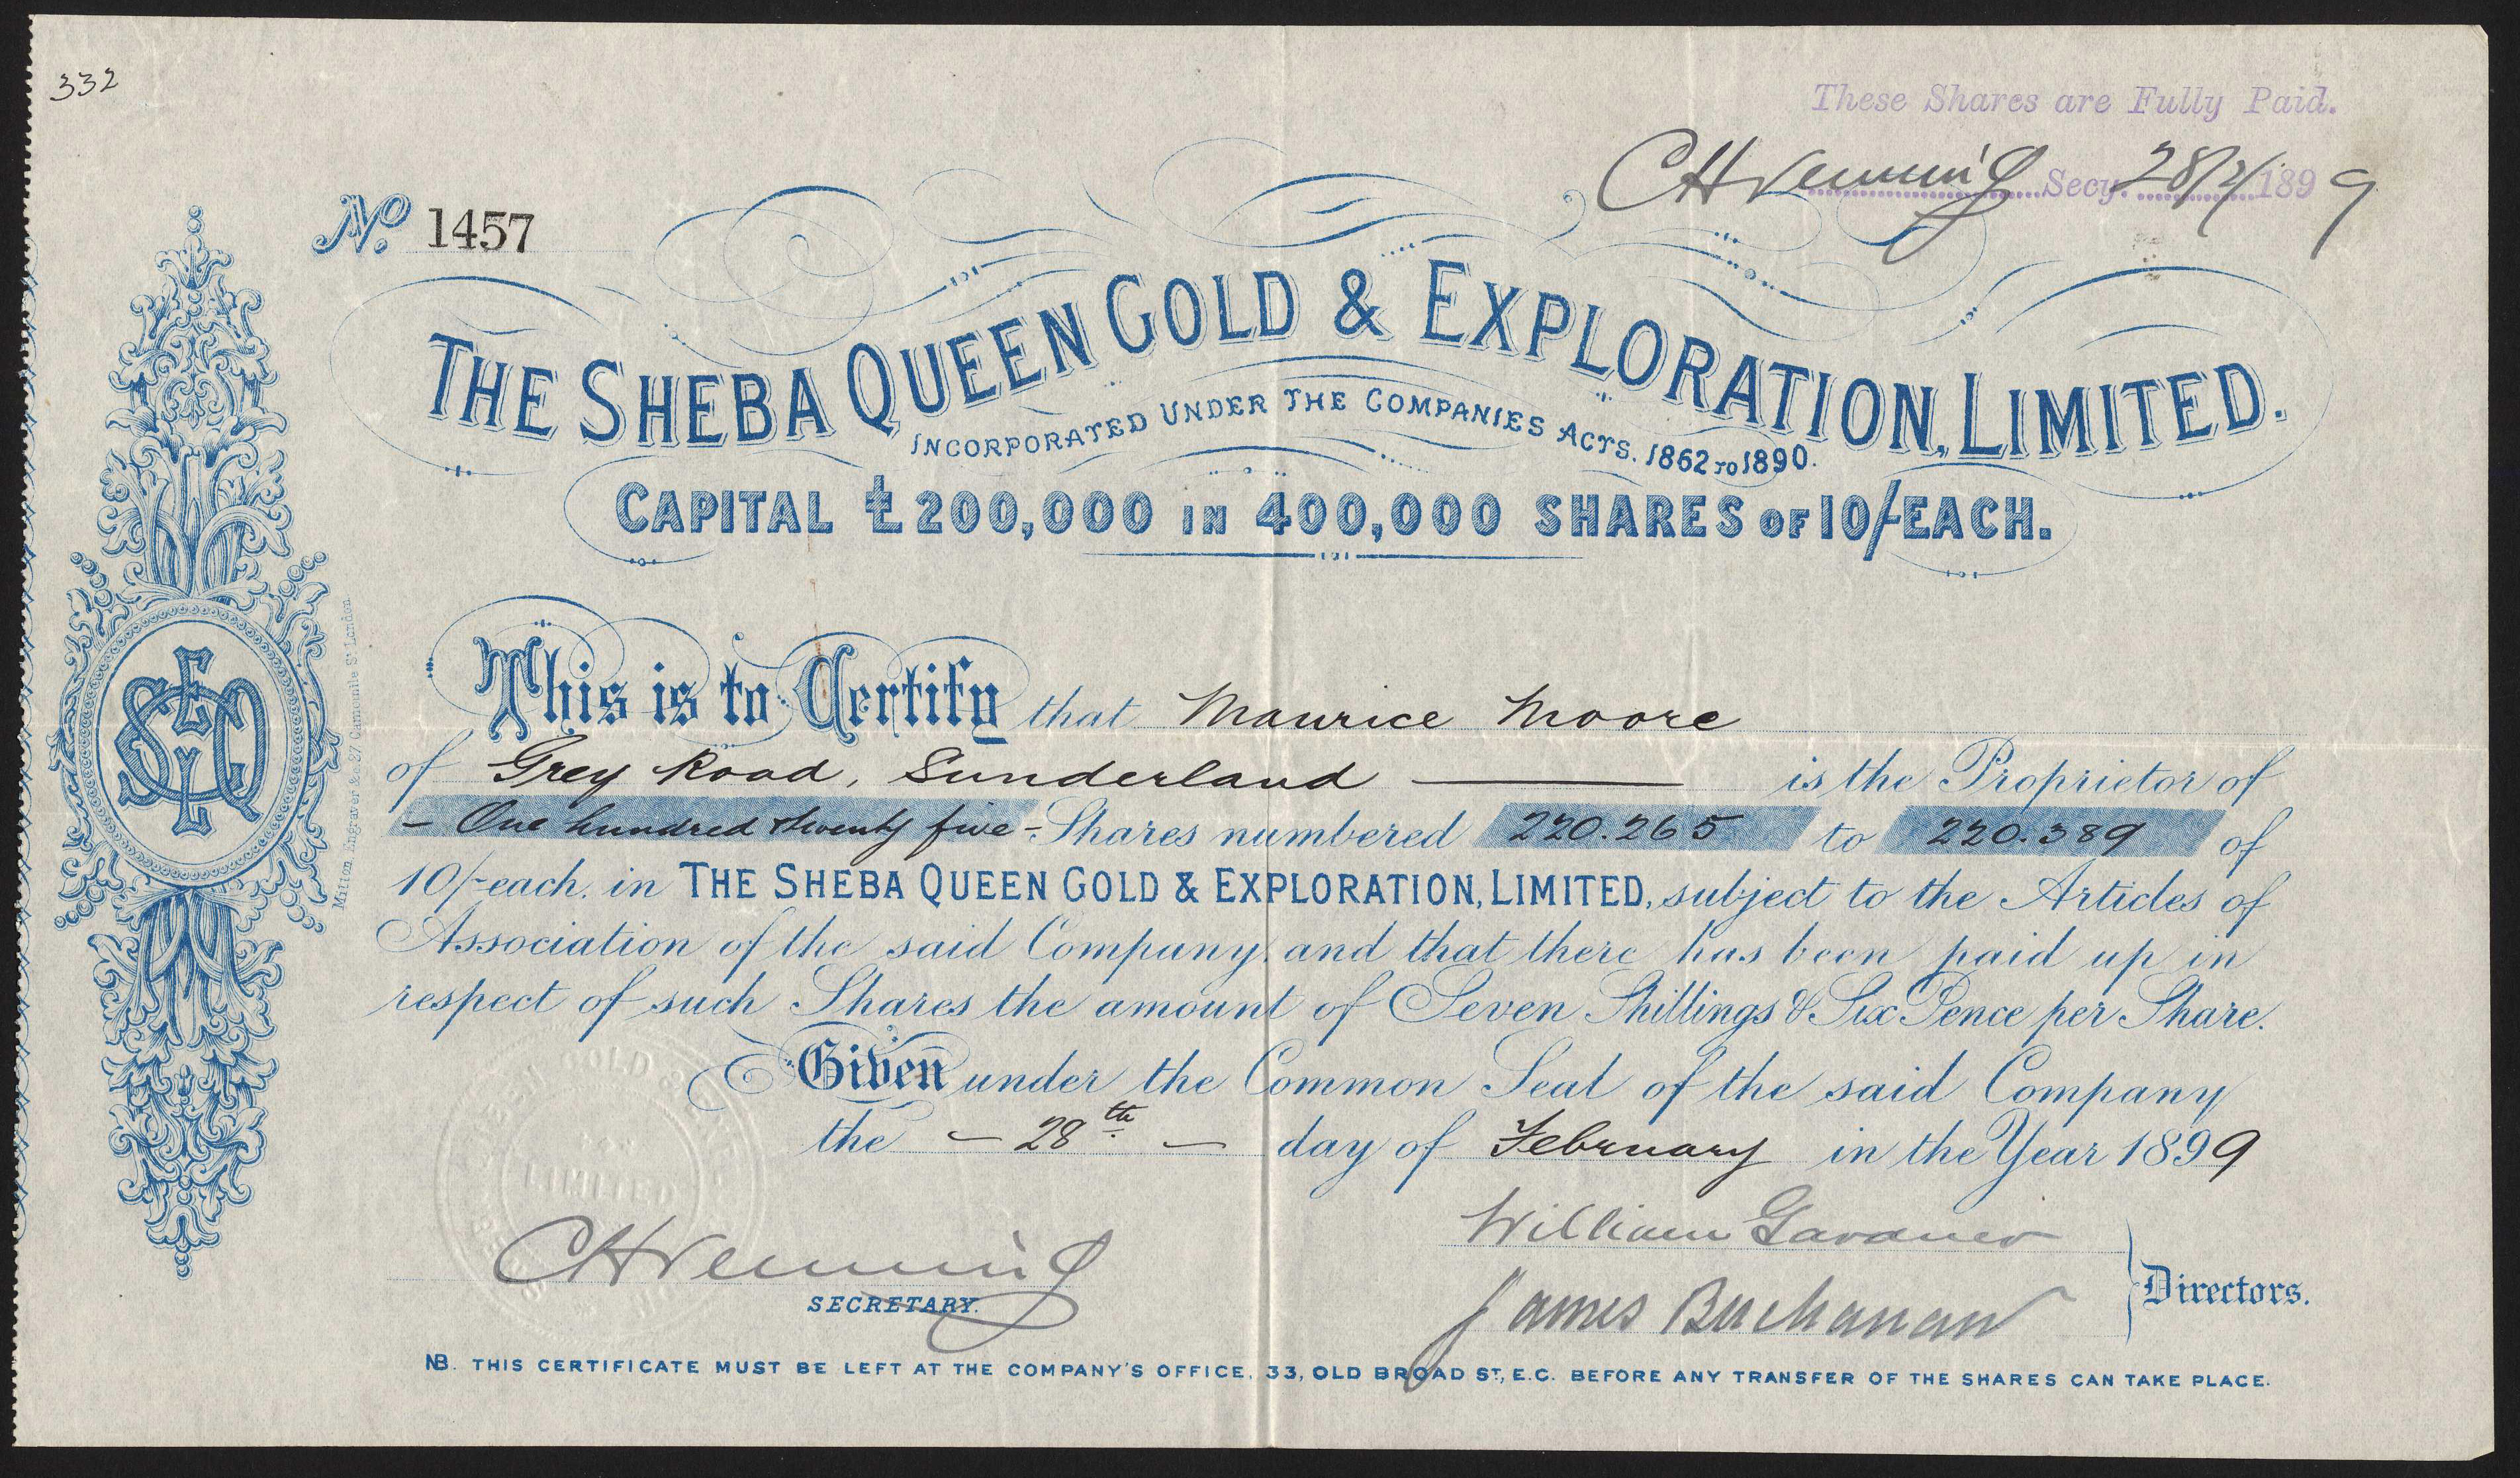 332
These Shares are Fully Paid.
CH Vemming Secy. 28/2/1899
No. 1457
THE SHEBA QUEEN GOLD & EXPLORATION, LIMITED.
INCORPORATED UNDER THE COMPANIES ACTS. 1862 TO 1890.
CAPITAL £200,000 IN 400,000 SHARES OF 10/- EACH.
This is to Certify that Maurice Moore
of Grey Road, Sunderland ——— is the Proprietor of
- One hundred & twenty five - Shares numbered 220.265 to 220.389 of
10/- each. in THE SHEBA QUEEN GOLD & EXPLORATION, LIMITED, subject to the Articles of
Association of the said Company, and that there has been paid up in
respect of such Shares the amount of Seven Shillings & Six Pence per Share.
Given under the Common Seal of the said Company
the - 28th - day of February in the Year 1899
William Gardner
CH Vemming
James Buchanan
SECRETARY.
Directors.
NB. THIS CERTIFICATE MUST BE LEFT AT THE COMPANY'S OFFICE, 33, OLD BROAD ST, E.C. BEFORE ANY TRANSFER OF THE SHARES CAN TAKE PLACE.
GOLD
LIMITED